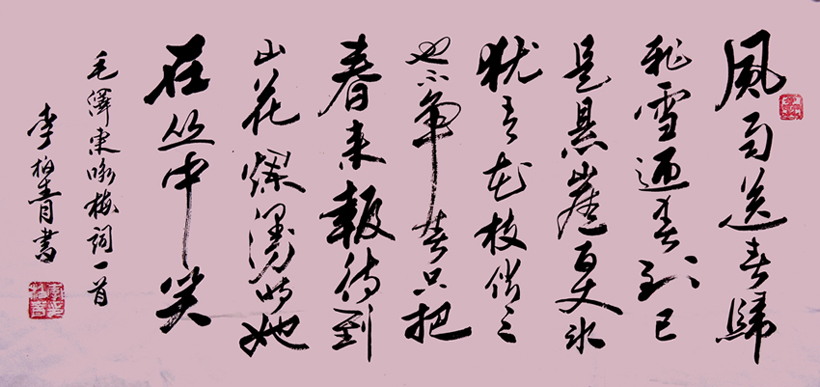 風雨送春歸
飛雪迎春到已
是悬崖百丈冰
犹有花枝俏々
也不争春只把
春来報待到
山花爛漫時她
在丛中笑
毛澤東咏梅詞一首
李柏青書